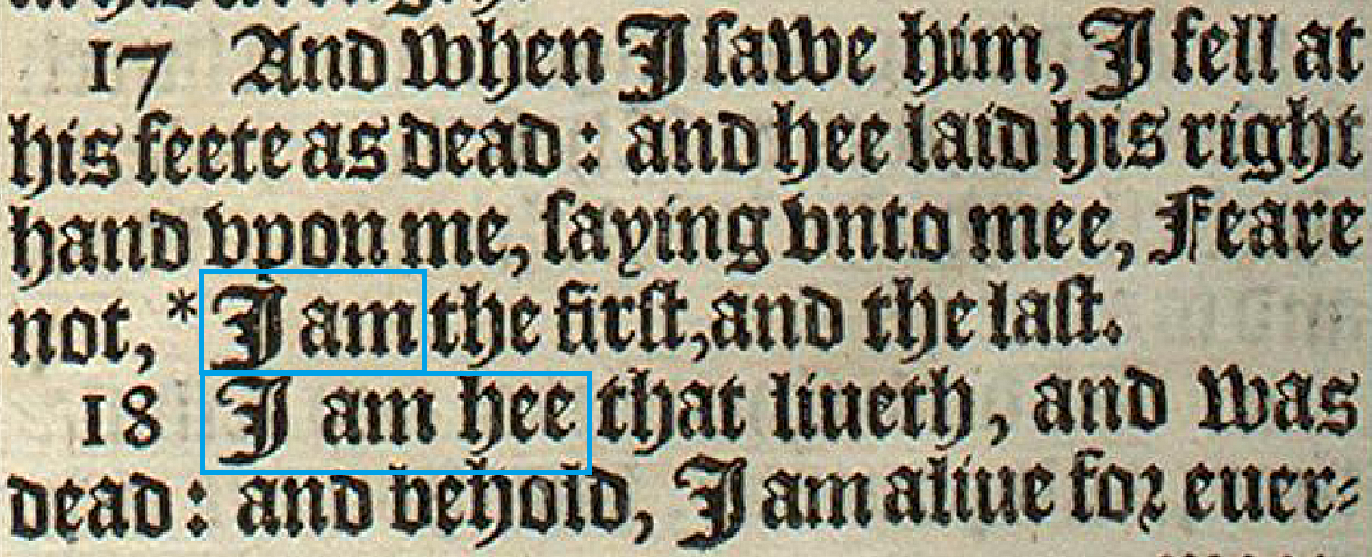 17 And when I sawe him, I fell at
his feete as dead: and hee laid his right
hand vpon me, saying vnto mee, Feare
not, *I am the first, and the last.
18 I am hee that liueth, and was
dead: and behold, I am aliue for euer-